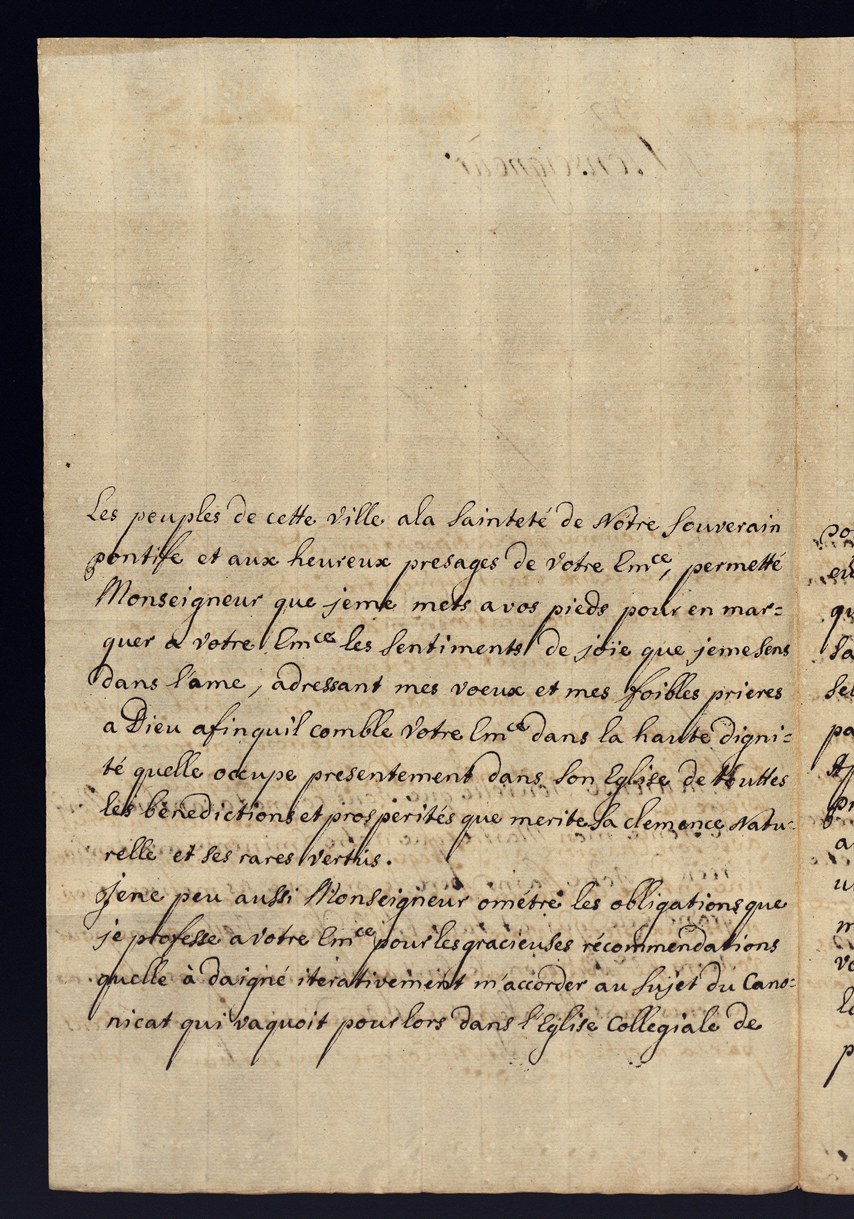 Les peuples de cette Ville ala Sainteté de Nôtre Souverain
pontife et aux heureux presages de Votre Em.ce, permetté
Monseigneur que jeme mets avos pieds pour en mar=
quer a Votre Em.ce les Sentiments de joïe que jemesens
dans l'ame, adressant mes voeux et mes foibles prieres
a Dieu afinquil comble Votre Em.ce dans la haute digni=
té quelle occupe presentement dans Son Eglise de touttes
les bénedictions et prospérités que merite Sa clemence Natu=
relle et ses rares Vertus.
Jene peu aussi Monseigneur ométre les obligations que
je professe a Votre Em.ce pour les gracieuses récommendations
quelle à daigné iterativement m'accorder au Sujet du Cano=
nicat qui vaquoit pour lors dans l'Eglise Collegiale de